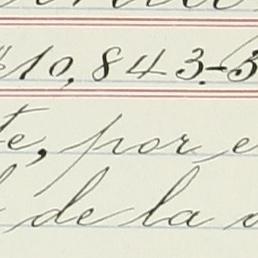 $10,843.-3
te, por e
de la